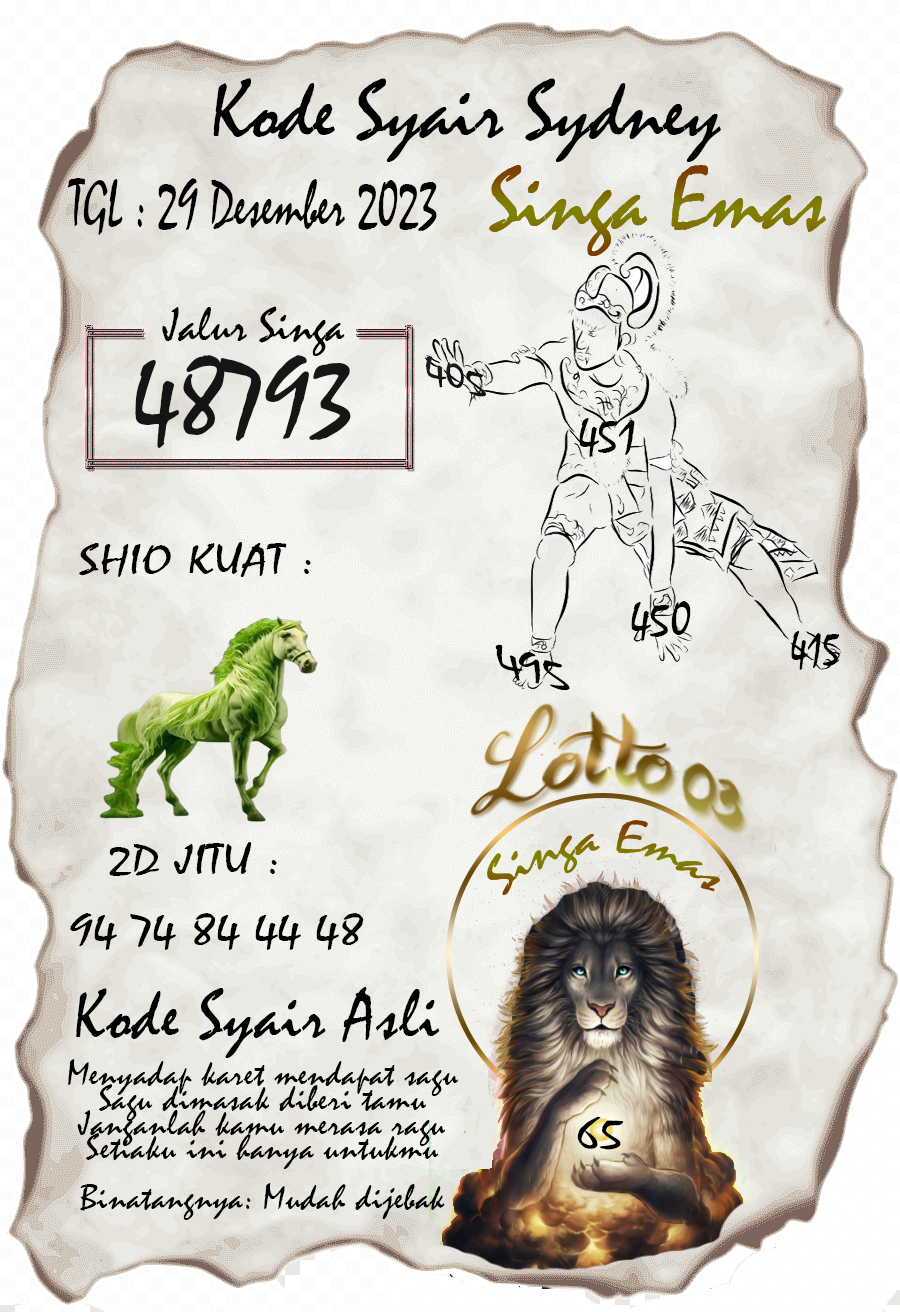 Kode Syair Sydney
TGL : 29 Desember 2023
Singa Emas
Jalur Singa
48793
405
451
450
495
415
SHIO KUAT :
2D JITU :
94 74 84 44 48
Lotto 03
Singa Emas
65
Kode Syair Asli
Menyadap karet mendapat sagu
Sagu dimasak diberi tamu
Janganlah kamu merasa ragu
Setiaku ini hanya untukmu
Binatangnya: Mudah dijebak